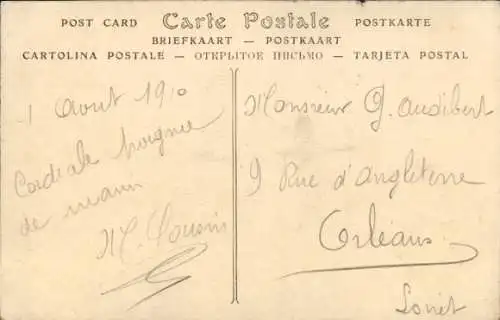 POST CARD Carte Postale POSTKARTE
BRIEFKAART — POSTKAART
CARTOLINA POSTALE — ОТКРЫТОЕ ПИСЬМО — TARJETA POSTAL
1 Aout 1910
Cordiale Poignée
de main
M. Cousin
Monsieur G. Audibert
9 Rue d'Angleterre
Orléans
Loiret